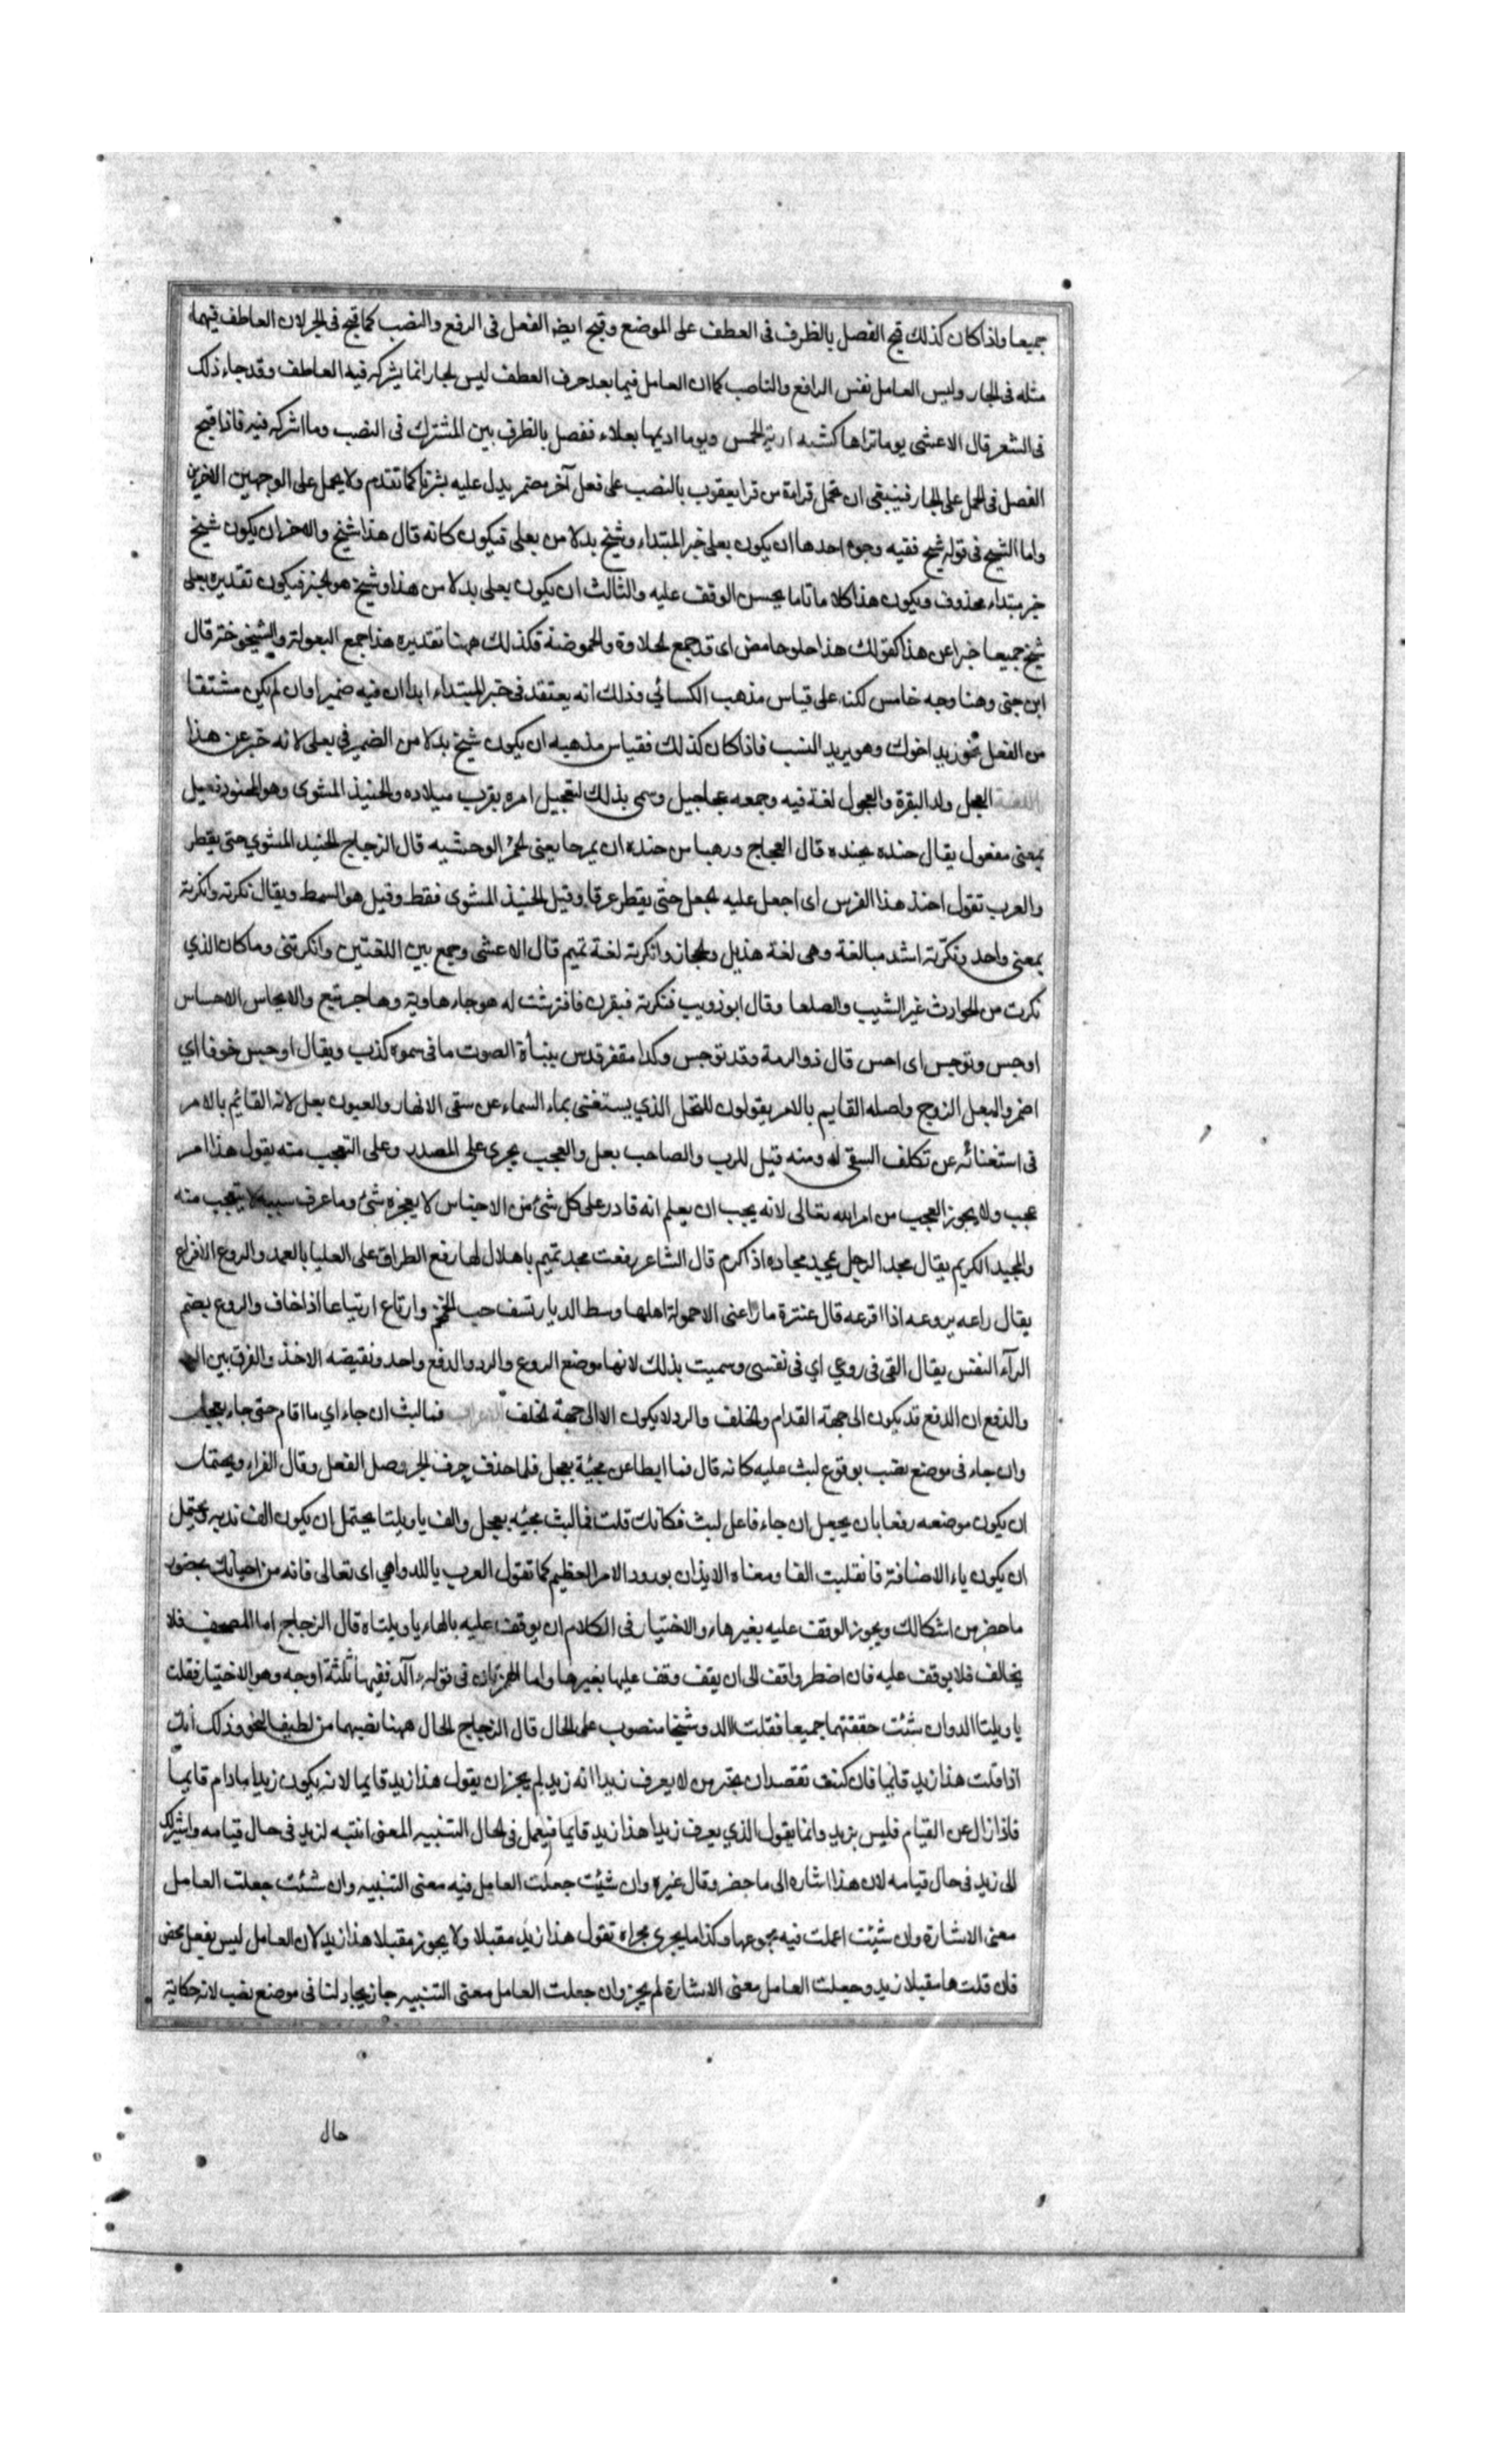 جميعا واذا كان كذلك قبح الفصل بالظرف فى العطف على الموضع وقبح ايضا الفصل فى الرفع والنصب كما قبح فى الجر لان العاطف فيهما
مثله فى الجار وليس العامل نفس الرافع والناصب كما ان العامل فيما بعد حرف العطف ليس الجار انما يشركه فيه العاطف وقد جاء ذلك
فى الشعر قال الاعشى يوما تراها كشبه اردية الخمس ويوما اديمها بغلاء ففصل بالظرف بين المشترك فى النصب وما اشركه فيه فاذا قبح
الفصل فى الحمل على الجار فينبغى ان تحمل قراءة من قرا يعقوب بالنصب على فعل آخر مضمر يدل عليه بشرنا كما تقدم ولا يحمل على الوجهين الاخرين
واما الشيخ فى قوله شيخ ففيه وجوه احدها ان يكون بعلى خبر المبتداء وشيخ بدلا من بعلى فيكون كانه قال هذا شيخ والاخر ان يكون شيخ
خبر مبتداء محذوف ويكون هذا كلاما تاما يحسن الوقف عليه والثالث ان يكون بعلى بدلا من هذا وشيخ هو الخبر فيكون تقديره بعلى
شيخ جميعا خبرا عن هذا كقولك هذا حلو حامض اى قد جمع الحلاوة والحموضة فكذلك ههنا تقديره هذا جمع البعولة والشيخوخة قال
ابن جنى وهنا وجه خامس لكنه على قياس مذهب الكسائي وذلك انه يعتقد فى خبر المبتداء ابدا ان فيه ضميرا وان لم يكن مشتقا
من الفعل نحو زيد اخوك وهو يريد النسب فاذا كان كذلك فقياس مذهبه ان يكون شيخ بدلا من الضمير في بعلى لانه خبر عن هذا
اللغة العجل ولد البقرة والعجول لغة فيه وجمعه عجاجيل وسمى بذلك لتعجيل امره بقرب ميلاده والحنيذ المشوى وهو المحنوذ فعيل
بمعنى مفعول يقال حنذه يحنذه قال العجاج ورهبا من حنذه ان يهرجا يعنى الحمر الوحشيه قال الزجاج الحنيذ المشوي حتى يقطر
والعرب تقول احنذ هذا الفرس اى اجعل عليه الجل حتى يقطر عرقا وقيل الحنيذ المشوى فقط وقيل هو السمط ويقال نكرته وانكرته
بمعنى واحد ونكرته اشد مبالغة وهى لغة هذيل والحجاز وانكرته لغة تميم قال الاعشى وجمع بين اللغتين وانكرتنى وما كان الذي
نكرت من الحوادث غير الشيب والصلعا وقال ابو ذويب فنكرنه فنفرن فافترشت له هوجاء هادية وهاد جرشع والايجاس الاحساس
اوجس وتوجس اى احس قال ذو الرمة وقد توجس ركدا مقفر ندس بنباة الصوت ما فى سمعه كذب ويقال اوجس خوفا اي
اضمر والبعل الزوج واصله القايم بالامر يقولون للنخل الذي يستغنى بماء السماء عن سقى الانهار والعيون بعل لانه القائم بالامر
فى استغنائه عن تكلف السقى له ومنه قيل للرب والصاحب بعل والعجب يجرى على المصدر وعلى التعجب منه يقول هذا امر
عجب ولا يجوز العجب من امر الله تعالى لانه يجب ان يعلم انه قادر على كل شئ من الاجناس لا يعجزه شئ وما عرف سببه لا يتعجب منه
والمجيد الكريم يقال مجد الرجل يمجد مجاده اذا كرم قال الشاعر رفعت مجد تميم باهلال لها رفع الطراف على العليا بالعمد والروع الافزاع
يقال راعه يروعه اذا افزعه قال عنترة ما راعنى الا حمولة اهلها وسط الديار تسف حب الخمخم وارتاع ارتياعا اذا خاف والروع بضم
الرآء النفس يقال القى فى روعي اي فى نفسى وسميت بذلك لانها موضع الروع والرد والدفع واحد ونقيضه الاخذ والفرق بين الرد
والدفع ان الدفع قد يكون الى جهة القدام والخلف والرد لا يكون الا الى جهة الخلف الاعراب فما لبث ان جاء اي ما اقام حتى جاء بعجل
وان جاء فى موضع نصب بوقوع لبث عليه كانه قال فما ابطا عن مجيئه بعجل فلما حذف حرف الجر وصل الفعل وقال الفراء ويحتمل
ان يكون موضعه رفعا بان يجعل ان جاء فاعل لبث فكانك قلت فما لبث مجيئه بعجل والف يا ويلتا يحتمل ان يكون الف ندبه ويحتمل
ان يكون ياء الاضافة فانقلبت الفا ومعناه الايذان بورود الامر العظيم كما تقول العرب يا للدواهي اى تعالى فانه من احيانك بحضور
ما حضر من اشكالك ويجوز الوقف عليه بغير هاء والاختيار فى الكلام ان يوقف عليه بالهاء يا ويلتاه قال الزجاج اما المصحف فلا
يخالف فلا يوقف عليه فان اضطر واقف الى ان يقف وقف عليها بغير ها واما الهمزتان فى قوله ءآلد ففيها ثلثة اوجه وهو الاختيار فقلت
يا ويلتا الد وان شئت حققتهما جميعا فقلت ءالد وشيخا منصوب على الحال قال الزجاج الحال ههنا نصبها من لطيف النحو وذلك أنك
اذا قلت هذا زيد قائما فان كنت تقصد ان تخبر من لا يعرف زيدا انه زيد لم يجز ان يقول هذا زيد قايما لانه يكون زيدا مادام قايما
فاذا زال عن القيام فليس بزيد وانما يقول الذي يعرف زيدا هذا زيد قايما فيعمل فى الحال التنبيه المعنى انتبه لزيد فى حال قيامه واشير لك
الى زيد فى حال قيامه لان هذا اشاره الى ما حضر وقال غيره وان شئت جعلت العامل فيه معنى التنبيه وان شئت جعلت العامل
معنى الاشارة وان شئت اعملت فيه مجموعهما وكذا ما يجرى مجراه تقول هذا زيد مقبلا ولا يجوز مقبلا هذا زيد لان العامل ليس بفعل محض
فان قلت ها مقبلا زيد وجعلت العامل معنى الاشارة لم يجز وان جعلت العامل معنى التنبيه جاز يجادلنا فى موضع نصب لانه حكاية
حال